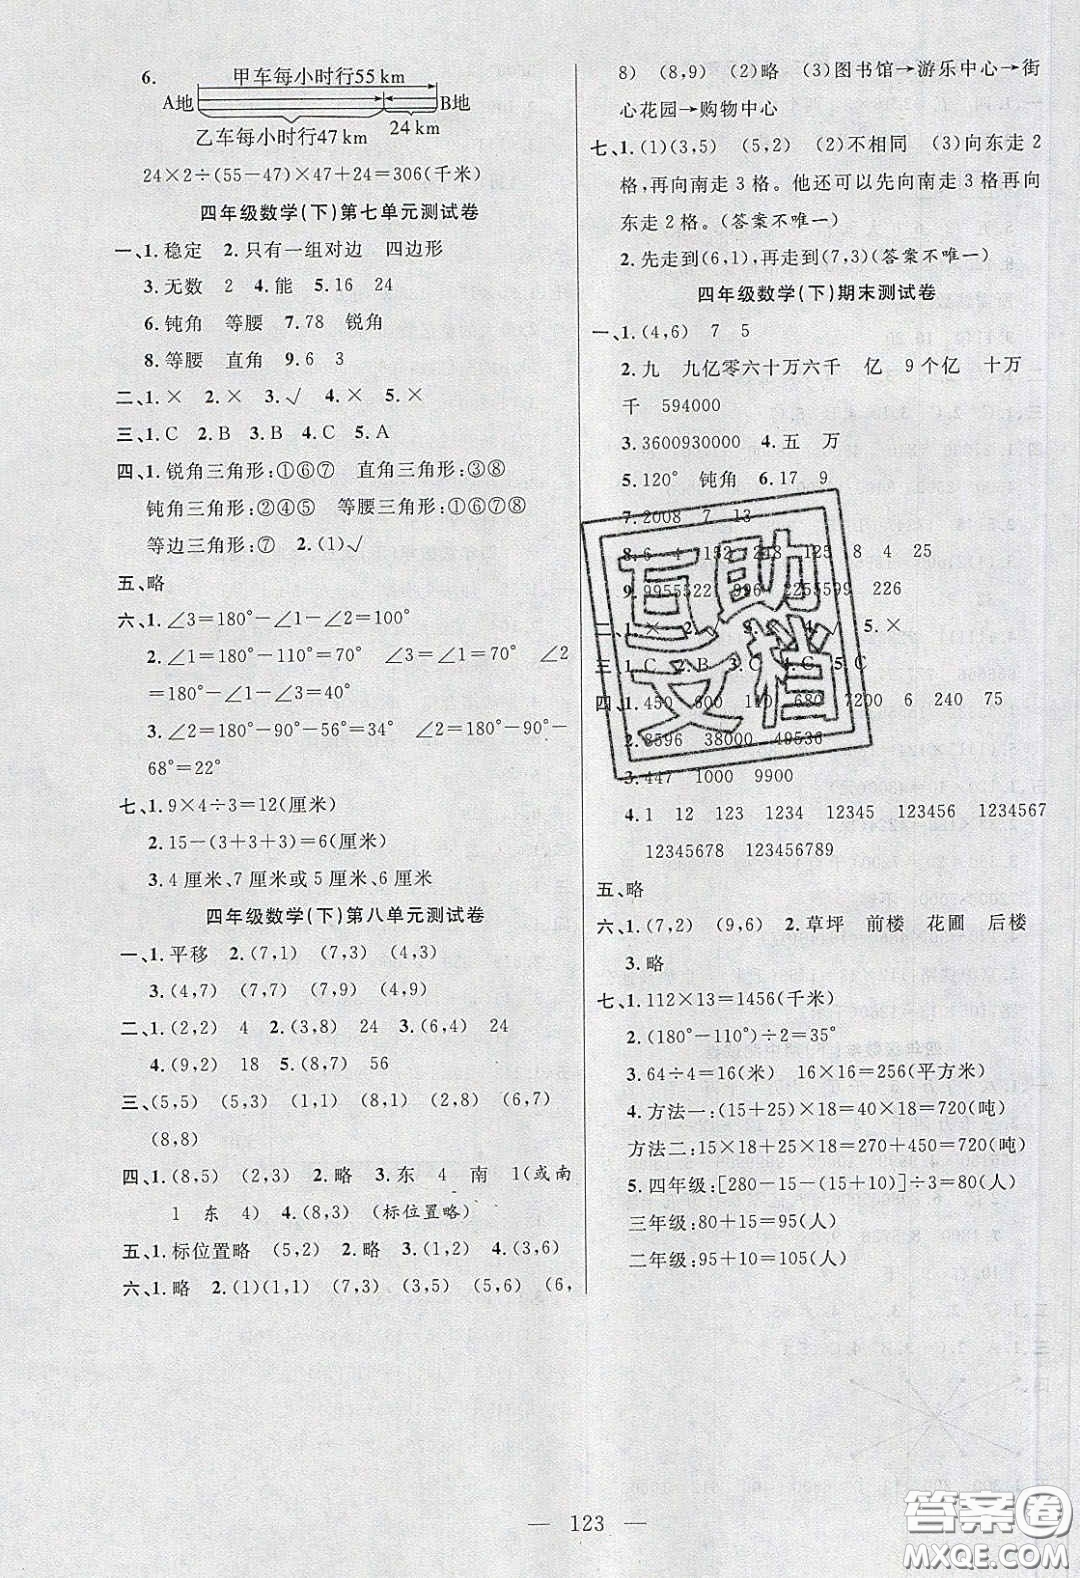 6.
甲车每小时行55 km
A地
B地
乙车每小时行47 km
24 km
24×2÷(55－47)×47＋24＝306(千米)
四年级数学(下)第七单元测试卷
一、1.稳定 2.只有一组对边 四边形
3.无数 2 4.能 5.16 24
6.钝角 等腰 7.78 锐角
8.等腰 直角 9.6 3
二、1.× 2.× 3.√ 4.× 5.×
三、1.C 2.B 3.B 4.C 5.A
四、1.锐角三角形:①⑥⑦ 直角三角形:③⑧
钝角三角形:②④⑤ 等腰三角形:①⑥⑦⑧
等边三角形:⑦ 2.(1)√
五、略
六、1.∠3＝180°－∠1－∠2＝100°
2.∠1＝180°－110°＝70° ∠3＝70° ∠2
＝180°－∠1－∠3＝40°
3.∠2＝180°－90°－56°＝34° ∠2＝180°－90°－
68°＝22°
七、1.9×4÷3＝12(厘米)
2.15－(3＋3＋3)＝6(厘米)
3.4厘米、7厘米或5厘米、6厘米
四年级数学(下)第八单元测试卷
一、1.平移 2.(7,1) (7,3) (4,3)
3.(4,7) (7,7) (7,9) (4,9)
二、1.(2,2) 4 2.(3,8) 24 3.(6,6) 24
4.(9,2) 18 5.(8,7) 56
三、(5,5) (5,3) (1,1) (8,1) (2,8) (6,7)
(8,8)
四、1.(8,5) (2,3) 2.略 3.东 4 南 1(或南
1 东 4) 4.(8,3) (标位置略)
五、1.标位置略 (5,2) 2.略 3.(1,2) 4.(3,6)
六、1.略 2.(1)(1,1) (7,3) (3,5) (5,6) (6,
8) (8,9) (2)略 (3)图书馆→游乐中心→街
心花园→购物中心
七、1.(1)(3,5) (5,2) (2)不相同 (3)向东走2
格,再向南走3格。他还可以先向南走3格再向
东走2格。(答案不唯一)
2.先走到(6,1),再走到(7,3)(答案不唯一)
四年级数学(下)期末测试卷
一、1.(4,6) 7 5
2.九 九亿零六十万六千 亿 9个亿 十万
千 594000
3.3600930000 4.五 万
5.120° 钝角 6.17 9
7.2008 7 13
8.6 4 152 248 125 8 4 25
9.9955522 996 2255599 226
二、1.× 5.×
三、1.C 2.B 3.C 4.C 5.C
四、1.450 600 110 680 7200 6 240 75
2.8596 38000 49536
3.447 1000 9900
4.1 12 123 1234 12345 123456 1234567
12345678 123456789
五、略
六、1.(7,2) (9,6) 2.草坪 前楼 花圃 后楼
3.略
七、1.112×13＝1456(千米)
2.(180°－110°)÷2＝35°
3.64÷4＝16(米) 16×16＝256(平方米)
4.方法一:(15＋25)×18＝40×18＝720(吨)
方法二:15×18＋25×18＝270＋450＝720(吨)
5.四年级:[280－15－(15＋10)]÷3＝80(人)
三年级:80＋15＝95(人)
二年级:95＋10＝105(人)
互助
文档
— 123 —
答案圈
MXQE.COM